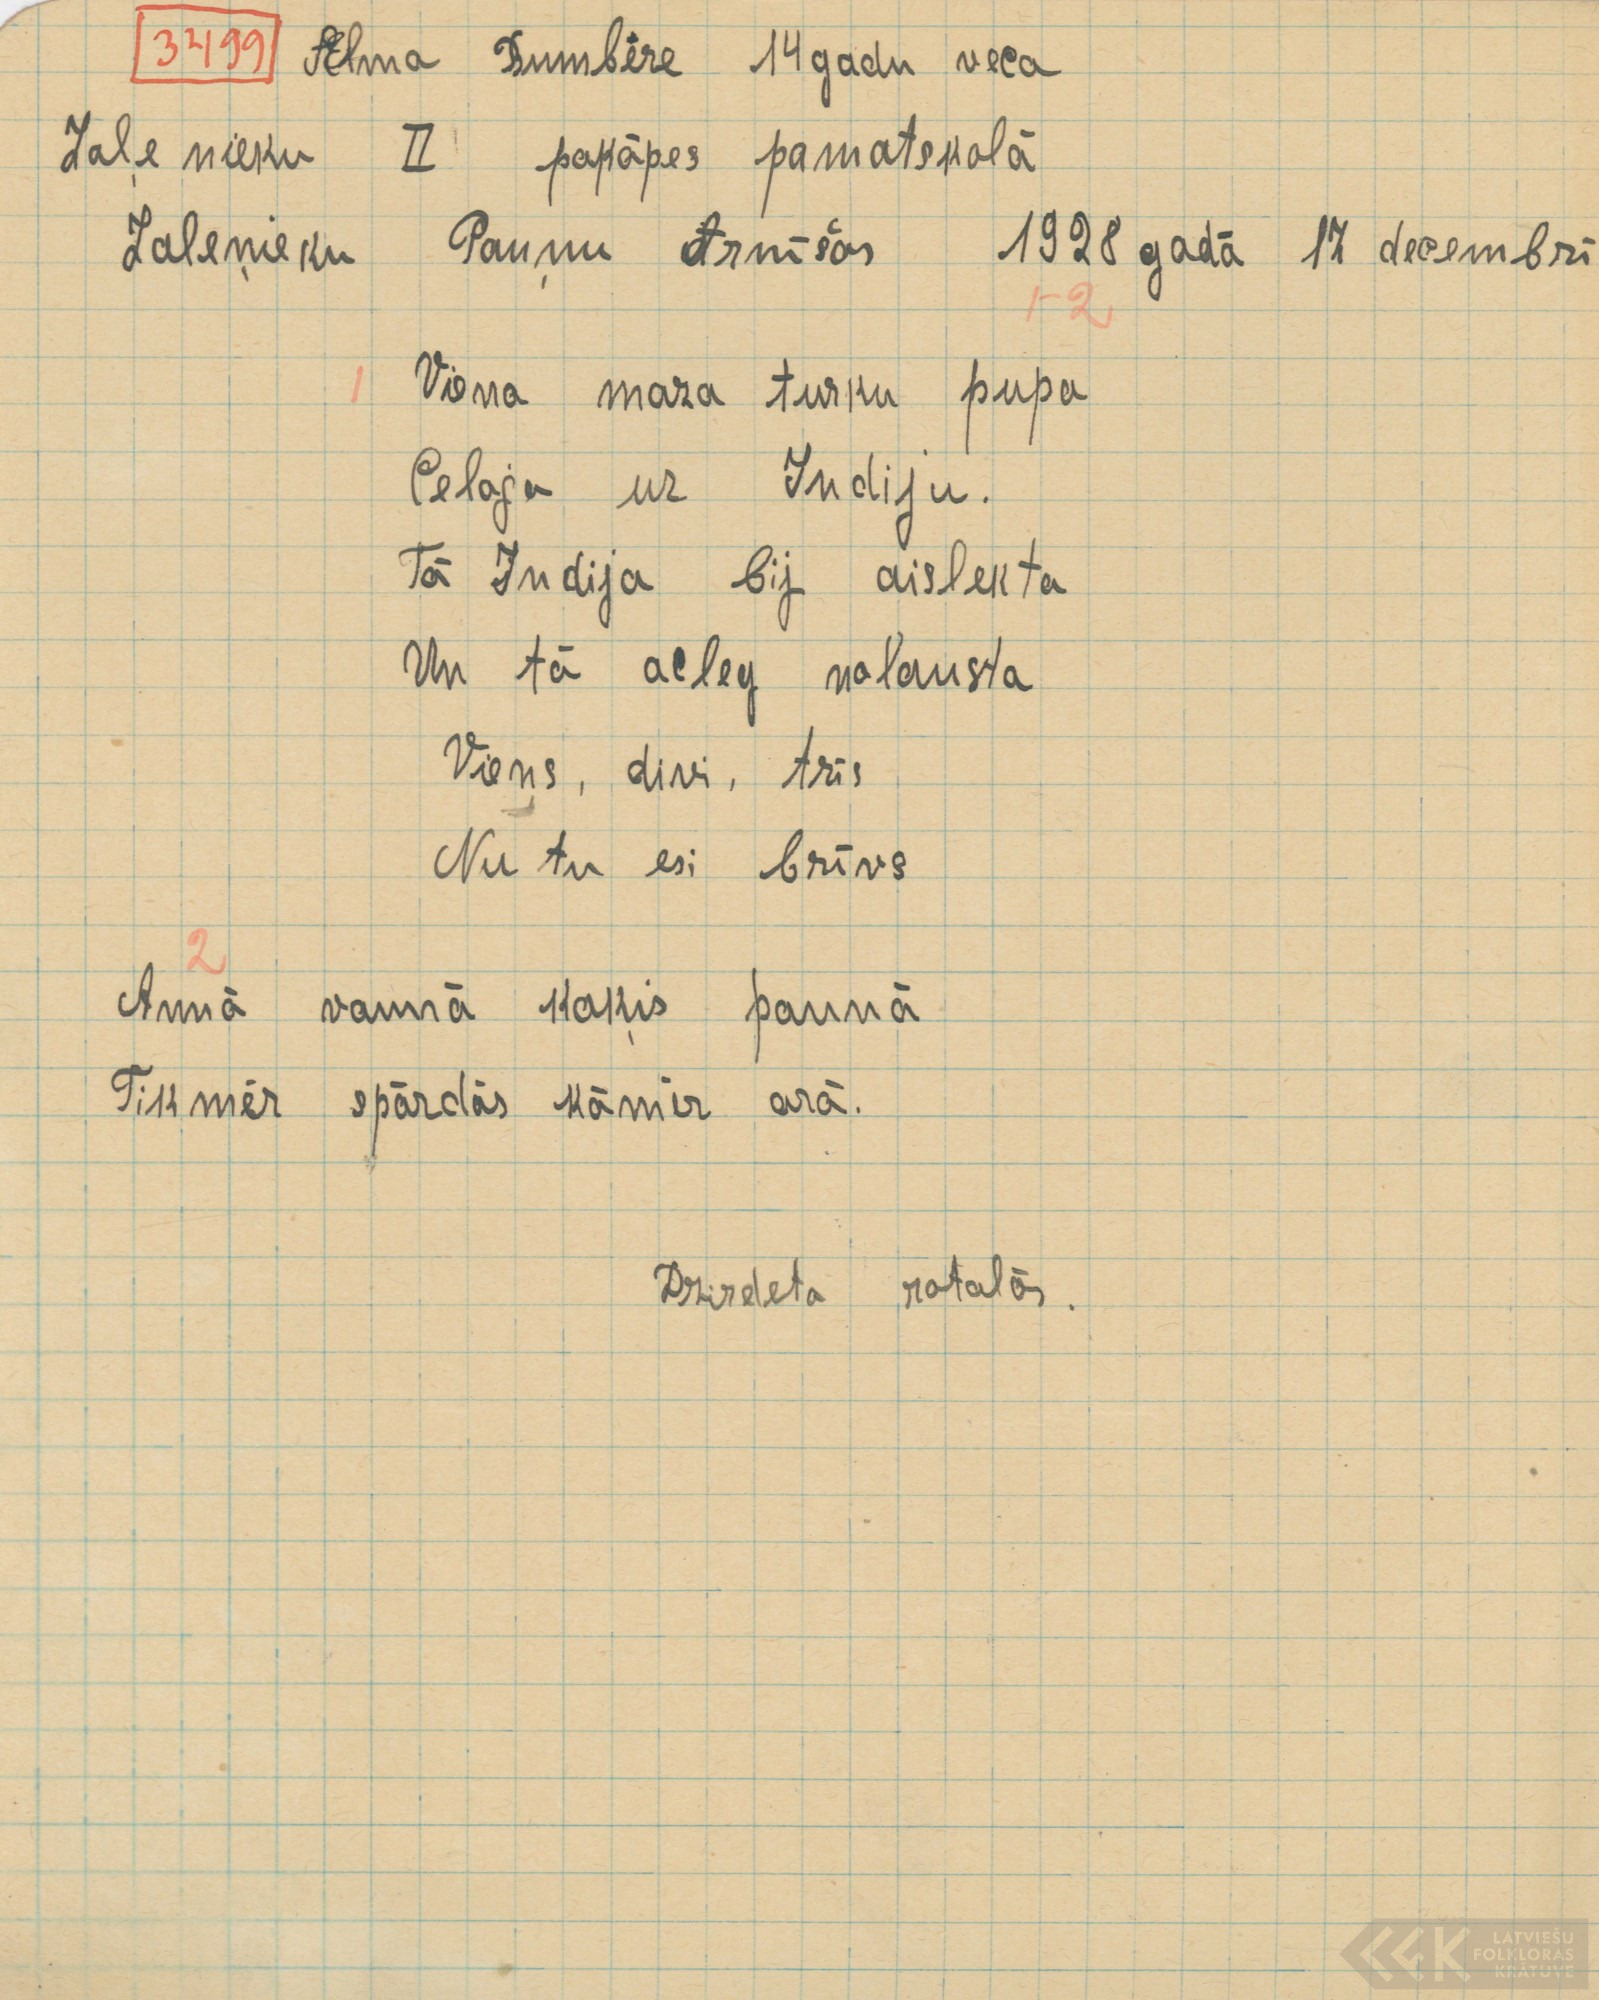 3499 Alma Dumbére 14 gadu veca
Zaļe nieku II pakāpes pamatskolā
Zaleņieku Pauņu Arnīšos 1928 gadā 17 decembrī
1-2
1 Viena maza turku pupa
Celoja uz Indiju.
Tā Indija bij aislekta
Un tā acleg nolausta
Vieņs, divi, trīs
Nu tu esi brīvs
2
Annā vannā kaķis paunā
Tikmēr spārdās kāmēr arā.
Dzirdeta rotalās.
LATVIEŠU
FOLKLORAS
KRĀTUVE